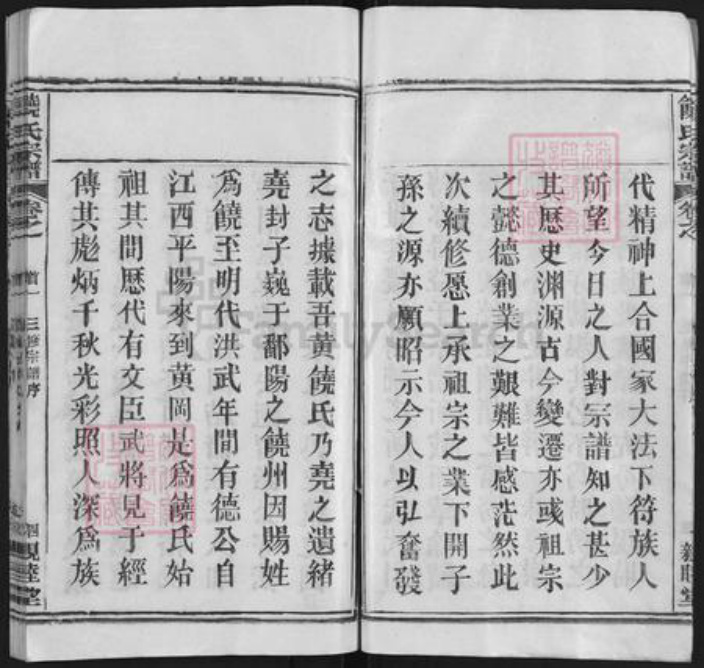 代精神上合國家大法下符族人
所望今日之人對宗譜知之甚少
其歷史渊源古今變遷亦或祖宗
之懿德創業之艱難皆感茫然此
次續修愿上承祖宗之業下開子
孫之源亦願昭示今人以弘奮發
之志據載吾黄饒氏乃堯之遺緒
堯封子巍于鄱陽之饒州因賜姓
爲饒至明代洪武年間有德公自
江西平陽來到黄岡是爲饒氏始
祖其間歷代有文臣武將見于經
傳其彪炳千秋光彩照人深爲族
饒氏宗譜
卷之
首一
三修宗譜序
四
親睦堂
FamilySearch